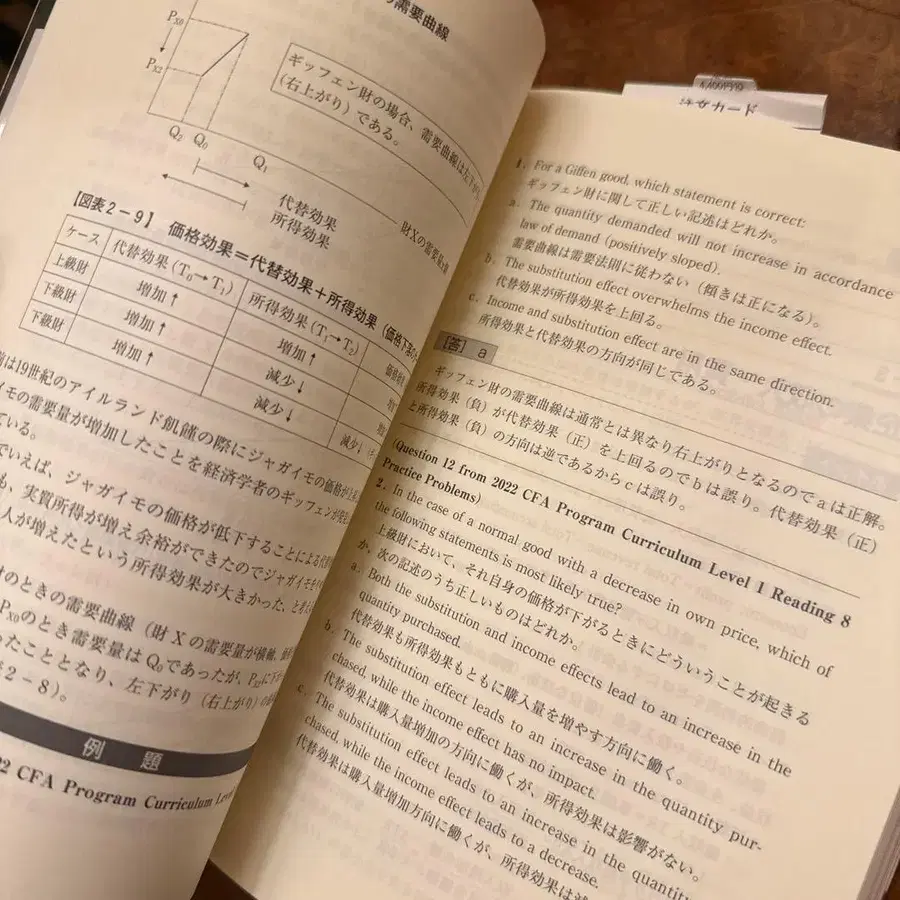 の需要曲線
PX0
PX2
Q2 Q0 Q1
ギッフェン財の場合、需要曲線は左下が
(右上がり)である。
代替効果
所得効果
財Xの需要量
【図表2-9】 価格効果=代替効果+所得効果(価格下落の
ケース 代替効果(T0→T1) 所得効果(T1→T2) 価格効
上級財 増加↑ 増加↑ 増加
下級財 増加↑ 減少↓ 増加
下級財 増加↑ 減少↓ 減少↓
は19世紀のアイルランド飢饉の際にジャガイモの価格が上
イモの需要量が増加したことを経済学者のギッフェンが発
ている。
でいえば、ジャガイモの価格が低下することによる代
も、実質所得が増え余裕ができたのでジャガイモを
人が増えたという所得効果が大きかった、と考え
財のときの需要曲線(財Xの需要量が横軸、
PX0のとき需要量はQ0であったが、PX2に下
ったこととなり、左下がり(右上がり)の
2-8)。
例題
22 CFA Program Curriculum Level
注文カード
1. For a Giffen good, which statement is correct:
ギッフェン財に関して正しい記述はどれか。
a. The quantity demanded will not increase in accordance
law of demand (positively sloped).
需要曲線は需要法則に従わない(傾きは正になる)。
b. The substitution effect overwhelms the income effect.
代替効果が所得効果を上回る。
c. Income and substitution effect are in the same direction.
所得効果と代替効果の方向が同じである。
[答] a
ギッフェン財の需要曲線は通常とは異なり右上がりとなるのでaは正解。
所得効果(負)が代替効果(正)を上回るのでbは誤り。代替効果(正)
と所得効果(負)の方向は逆であるからcは誤り。
(Question 12 from 2022 CFA Program Curriculum Level 1 Reading 8
Practice Problems)
2. In the case of a normal good with a decrease in own price, which of
the following statements is most likely true?
上級財において、それ自身の価格が下がるときにどういうことが起きる
か。次の記述のうち正しいものはどれか。
a. Both the substitution and income effects lead to an increase in the
quantity purchased.
代替効果も所得効果もともに購入量を増やす方向に働く。
b. The substitution effect leads to an increase in the quantity pur-
chased, while the income effect has no impact.
代替効果は購入量増加の方向に働くが、所得効果は影響がない。
c. The substitution effect leads to an increase in the quantity
chased, while the income effect leads to a decrease.
代替効果は購入量増加方向に働くが、所得効果は減